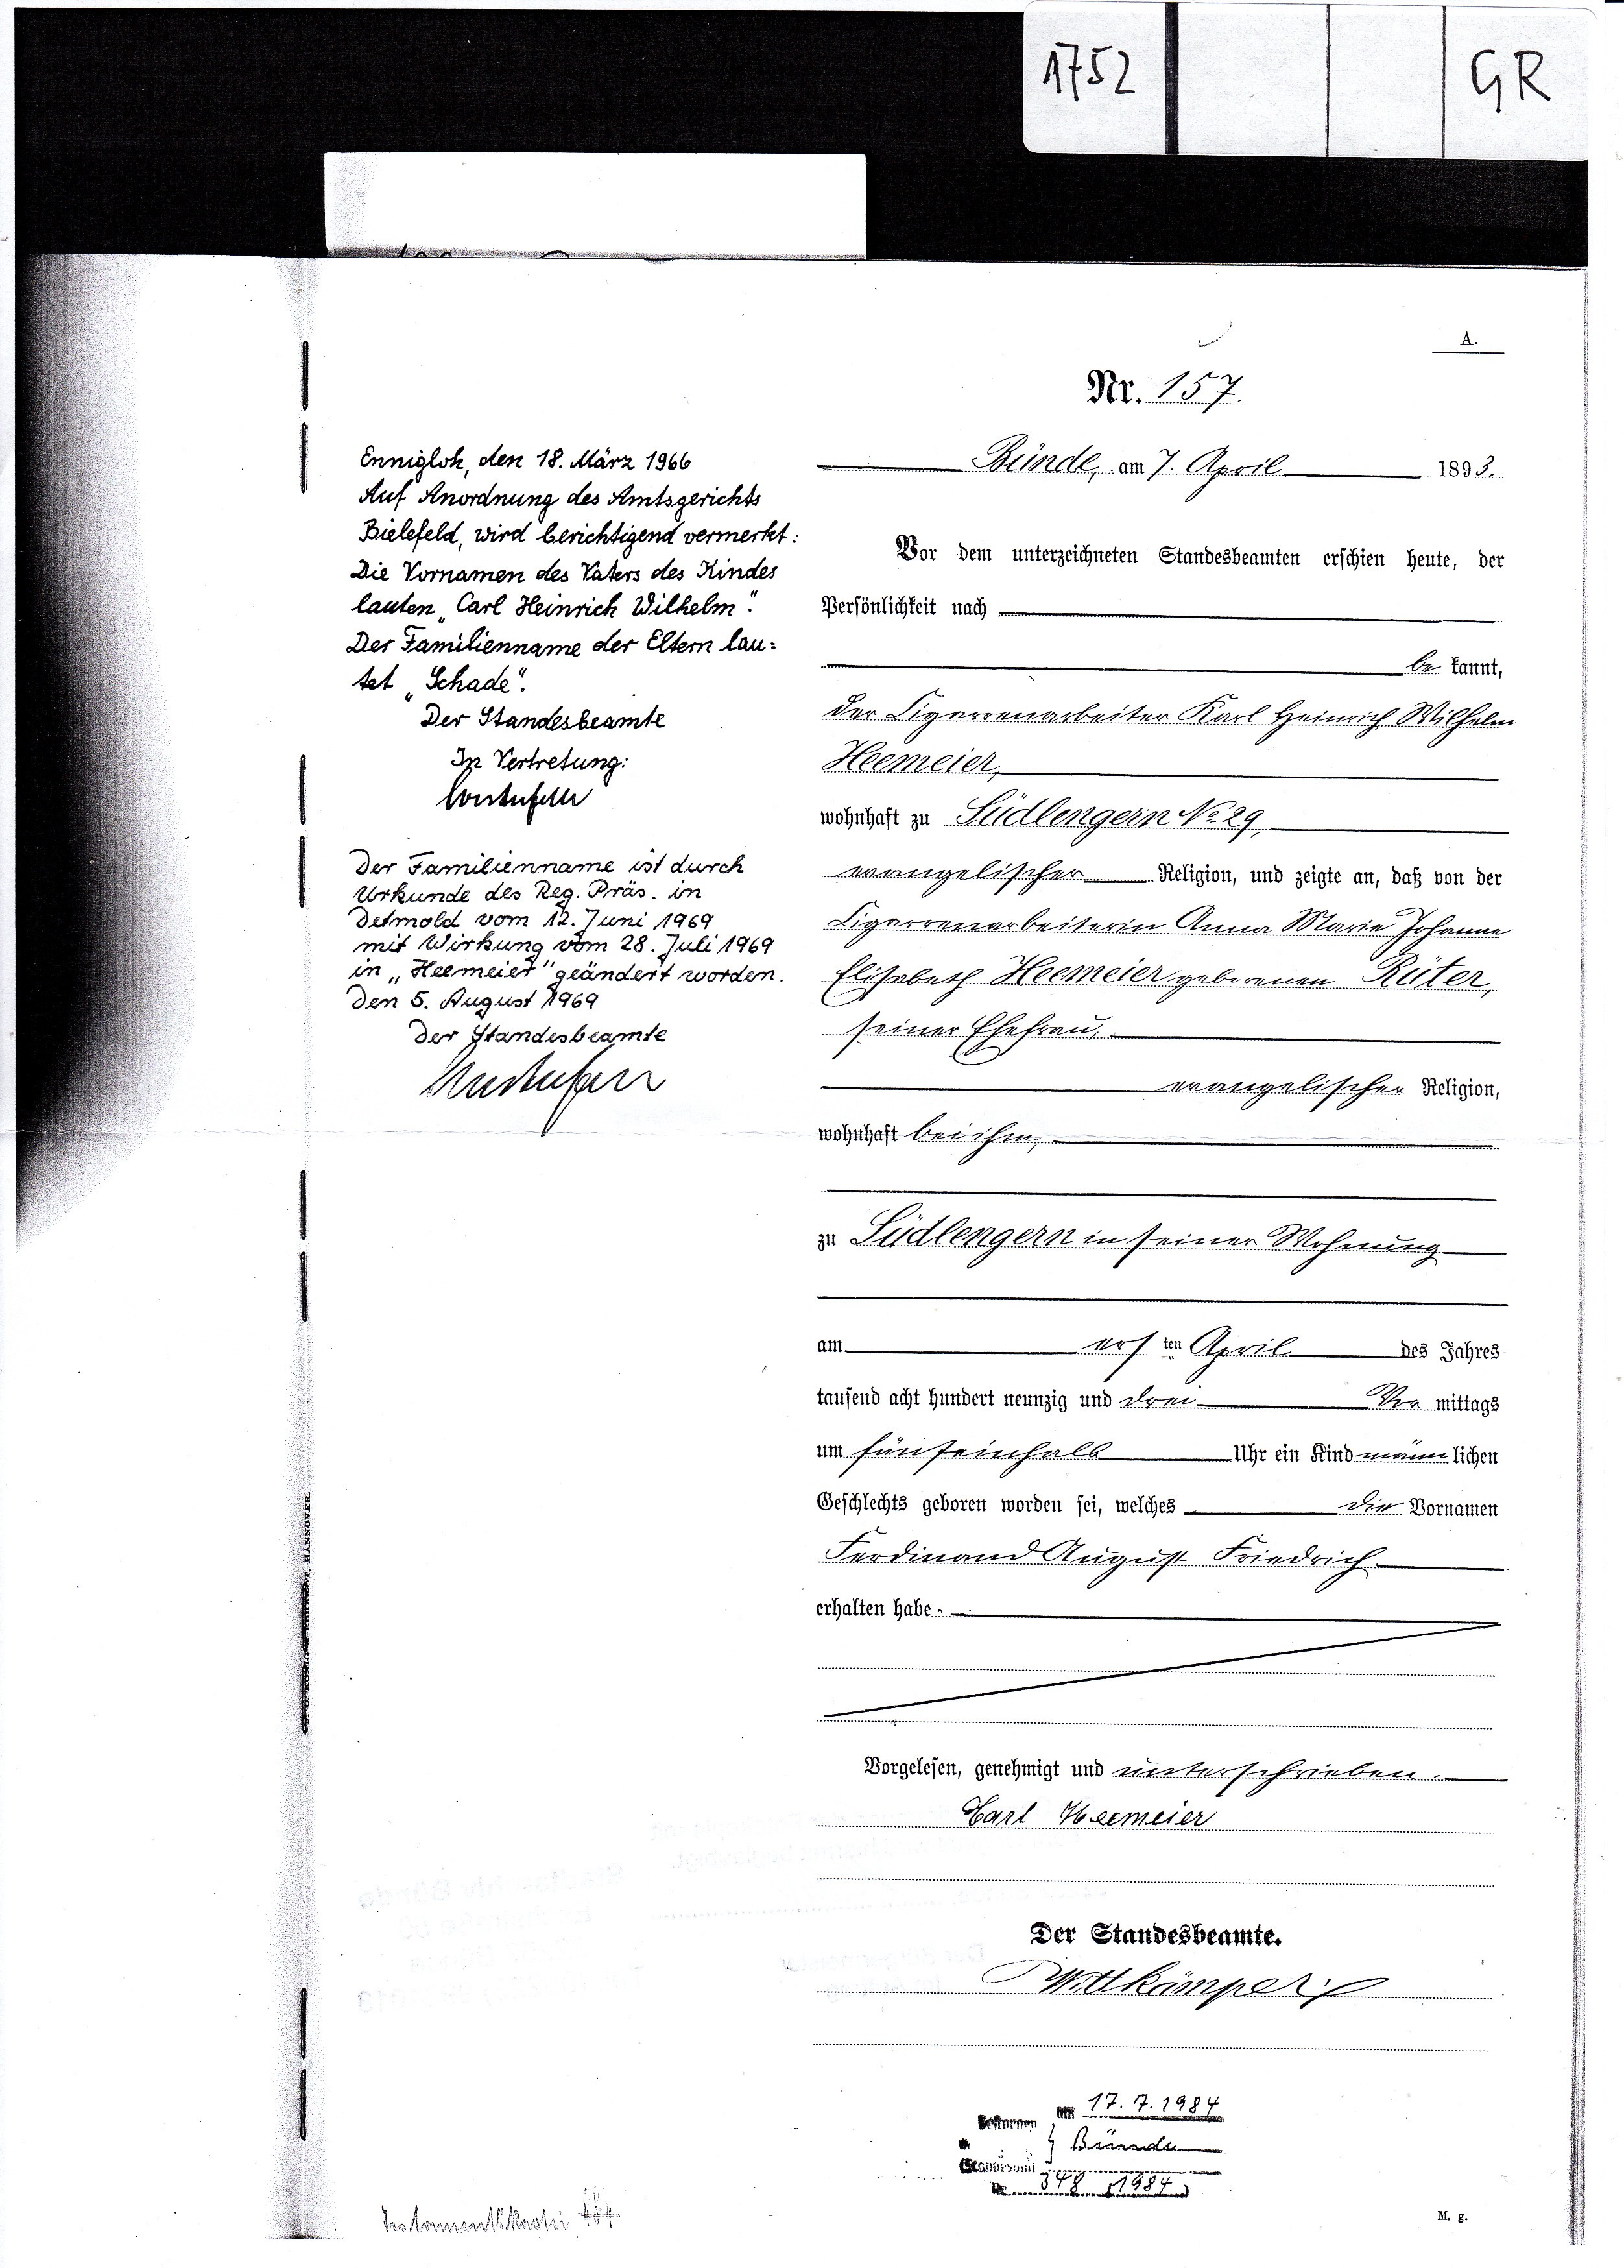 1752
GR
A.
Nr. 157.
Bünde, am 7. April 1893.
Vor dem unterzeichneten Standesbeamten erschien heute, der
Persönlichkeit nach
be kannt,
der Cigarrenarbeiter Karl Heinrich Wilhelm
Heemeier,
wohnhaft zu Südlengern No. 29,
evangelischer Religion, und zeigte an, daß von der
Cigarrenarbeiterin Anna Marie Johanne
Elisabeth Heemeier geborenen Rüter,
seiner Ehefrau,
evangelischer Religion,
wohnhaft bei ihm,
zu Südlengern in seiner Wohnung
am ersten April des Jahres
tausend acht hundert neunzig und drei Vor mittags
um fünfeinhalb Uhr ein Kind männlichen
Geschlechts geboren worden sei, welches die Vornamen
Ferdinand August Friedrich
erhalten habe.
Vorgelesen, genehmigt und unterschrieben.
Carl Heemeier
Der Standesbeamte.
Wittkämper
Enniglok, den 18. März 1966
Auf Anordnung des Amtsgerichts
Bielefeld, wird berichtigend vermerkt:
Die Vornamen des Vaters des Kindes
lauten „Carl Heinrich Wilhelm".
Der Familienname der Eltern lau=
tet „Schade".
Der Standesbeamte
In Vertretung:
Der Familienname ist durch
Urkunde des Reg. Präs. in
Detmold vom 12. Juni 1969
mit Wirkung vom 28. Juli 1969
in „Heemeier" geändert worden.
Den 5. August 1969
Der Standesbeamte
HANNOVER
Gestorben am 17.7.1984
Bünde
Standesamt
Nr. 348 / 1984
Testamentskartei
M. g.